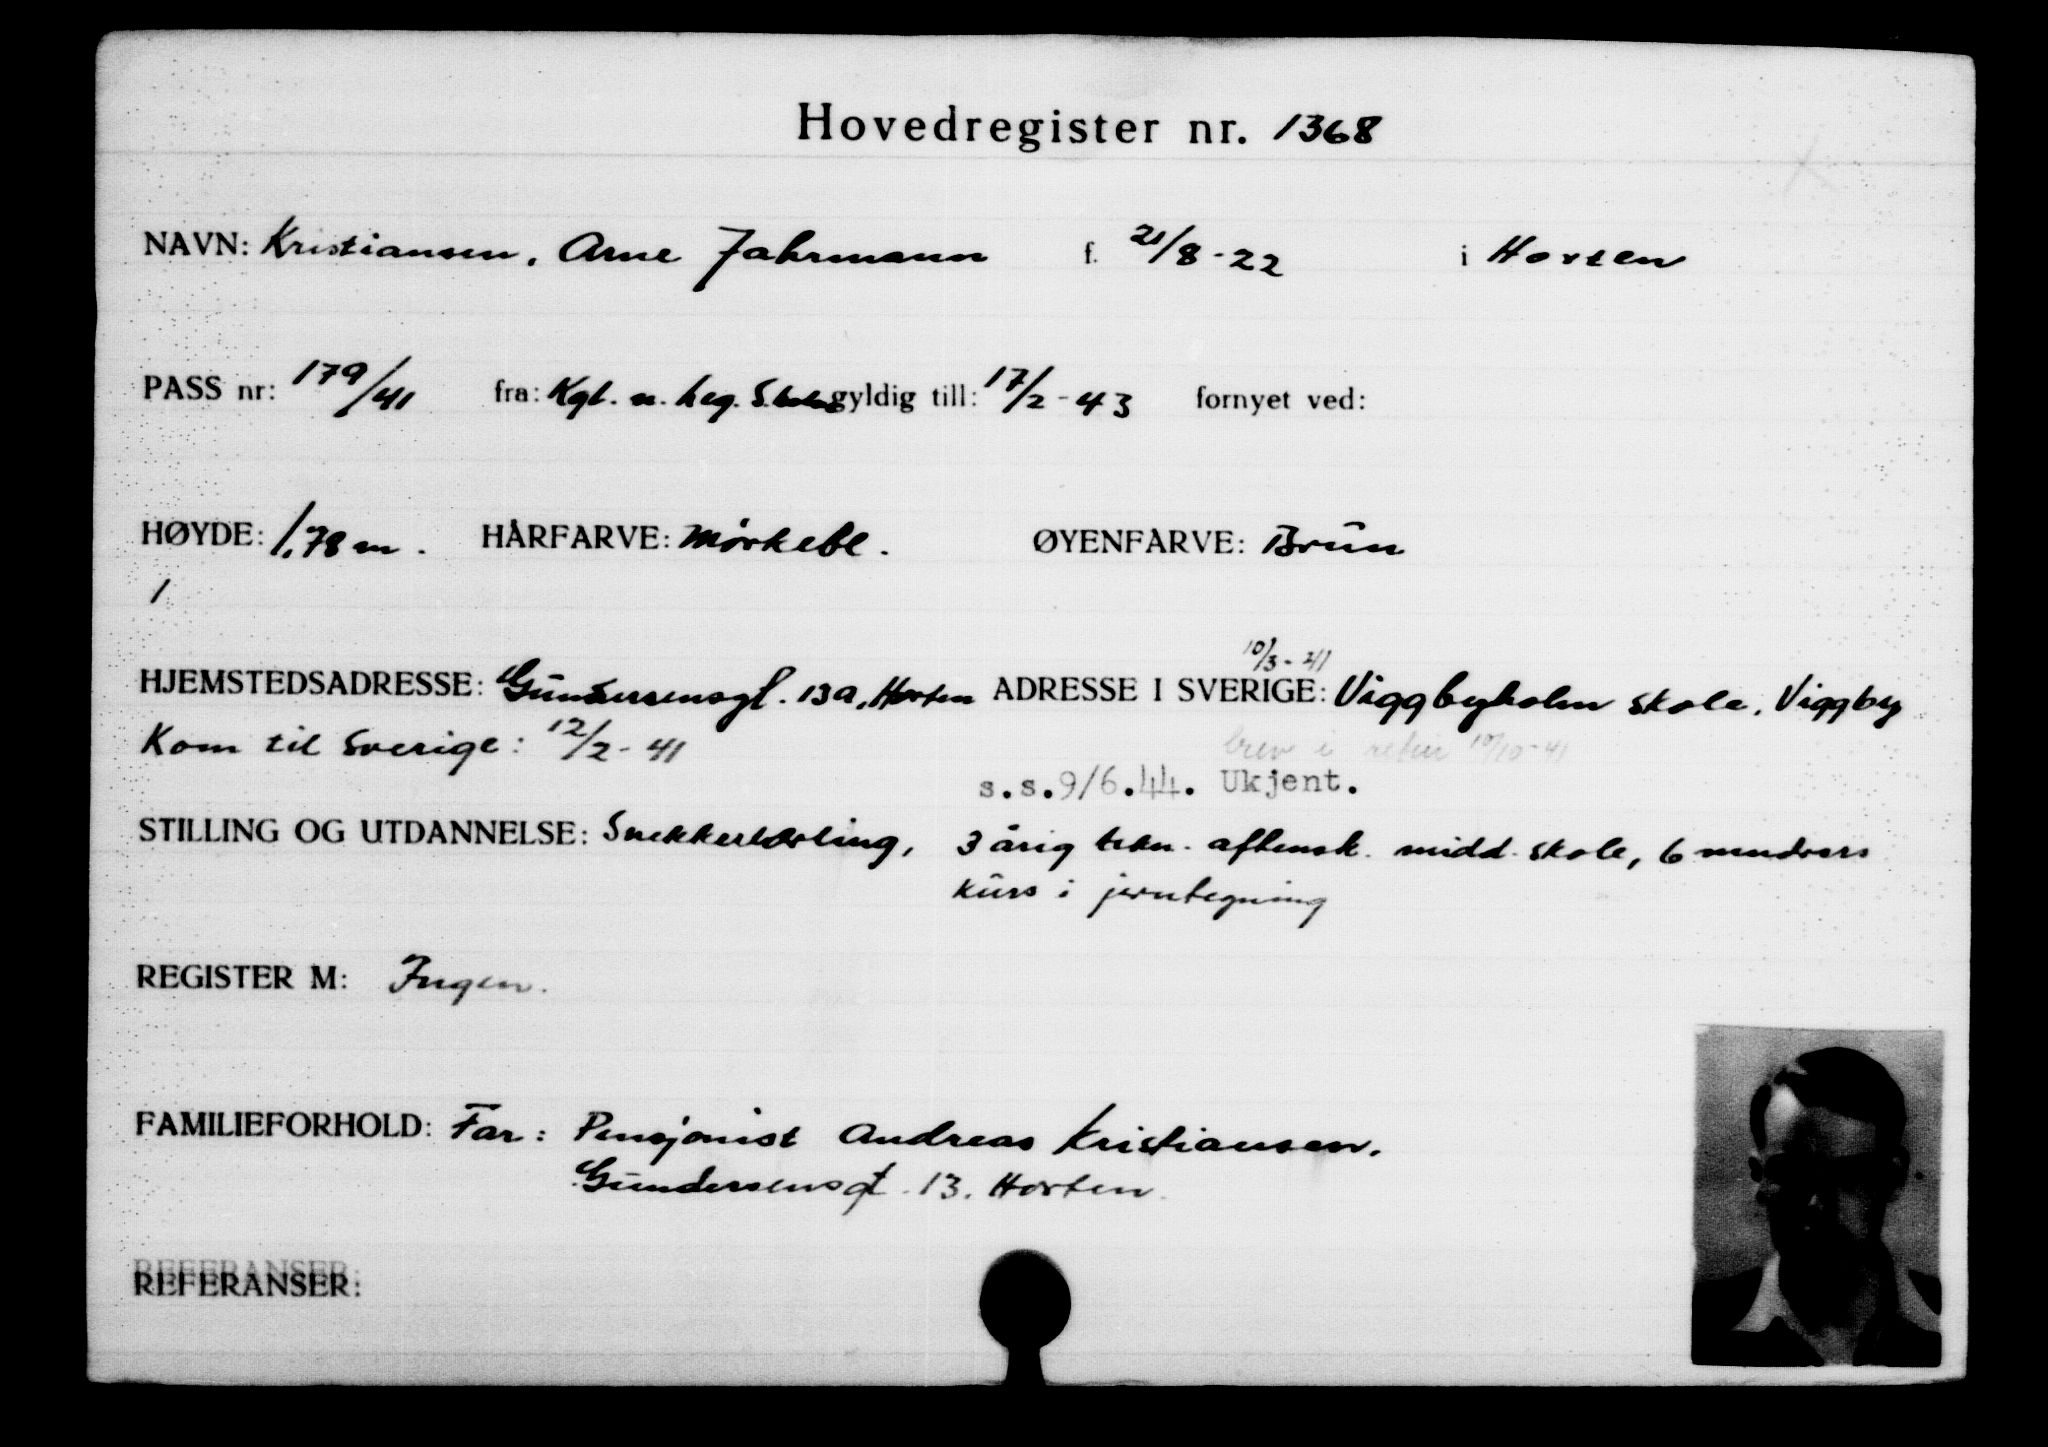 Hovedregister nr. 1368
NAVN: Kristiansen, Arne Jahrmann f. 21/8-22 i Horten
PASS nr: 179/41 fra: Kgl. n. Leg. Sthlm gyldig till: 17/2-43 fornyet ved:
HØYDE: 1,78 m. HÅRFARVE: Mörkebl. ØYENFARVE: Brun
1
10/3-41
HJEMSTEDSADRESSE: Gundersensgt. 13a, Horten ADRESSE I SVERIGE: Viggbyholm skole, Viggby
Kom til Sverige: 12/2-41 brev i retur 10/10-41
s.s.9/6.44. Ukjent.
STILLING OG UTDANNELSE: Snekkerlærling, 3 årig tekn. aftensk. midd. skole, 6 mndrs
kurs i jerntegning
REGISTER M: Ingen.
FAMILIEFORHOLD: Far: Pensjonist Andreas Kristiansen,
Gundersensgt. 13. Horten.
REFERANSER: